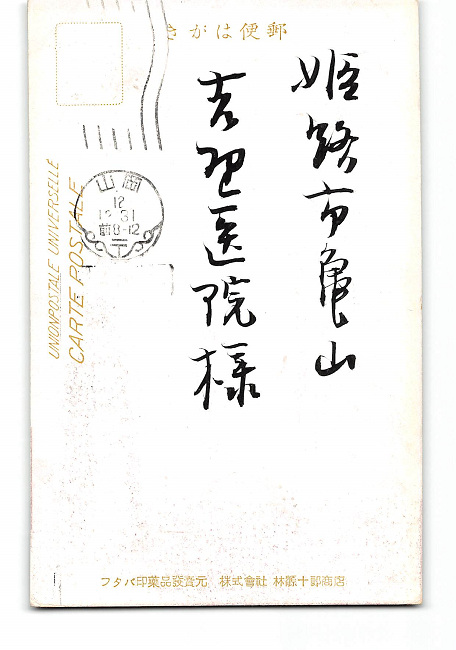 郵便はがき
姫路市亀山
吉 医院様
岡山
12
12 31
前8-12
UNION POSTALE UNIVERSELLE
CARTE POSTALE
フタバ印薬品發賣元 株式會社 林源十郎商店